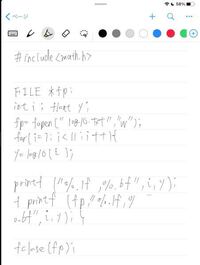 58%
ページ
#include<math.h>
FILE *fp;
int i; float y;
fp=fopen("log10.txt","w");
for(i=1; i<11; i++){
y=log10(i);
printf("%.1f ,%.6f",i,y);
fprintf(fp,"%.1f,%
0.6f",i,y); }
fclose(fp);